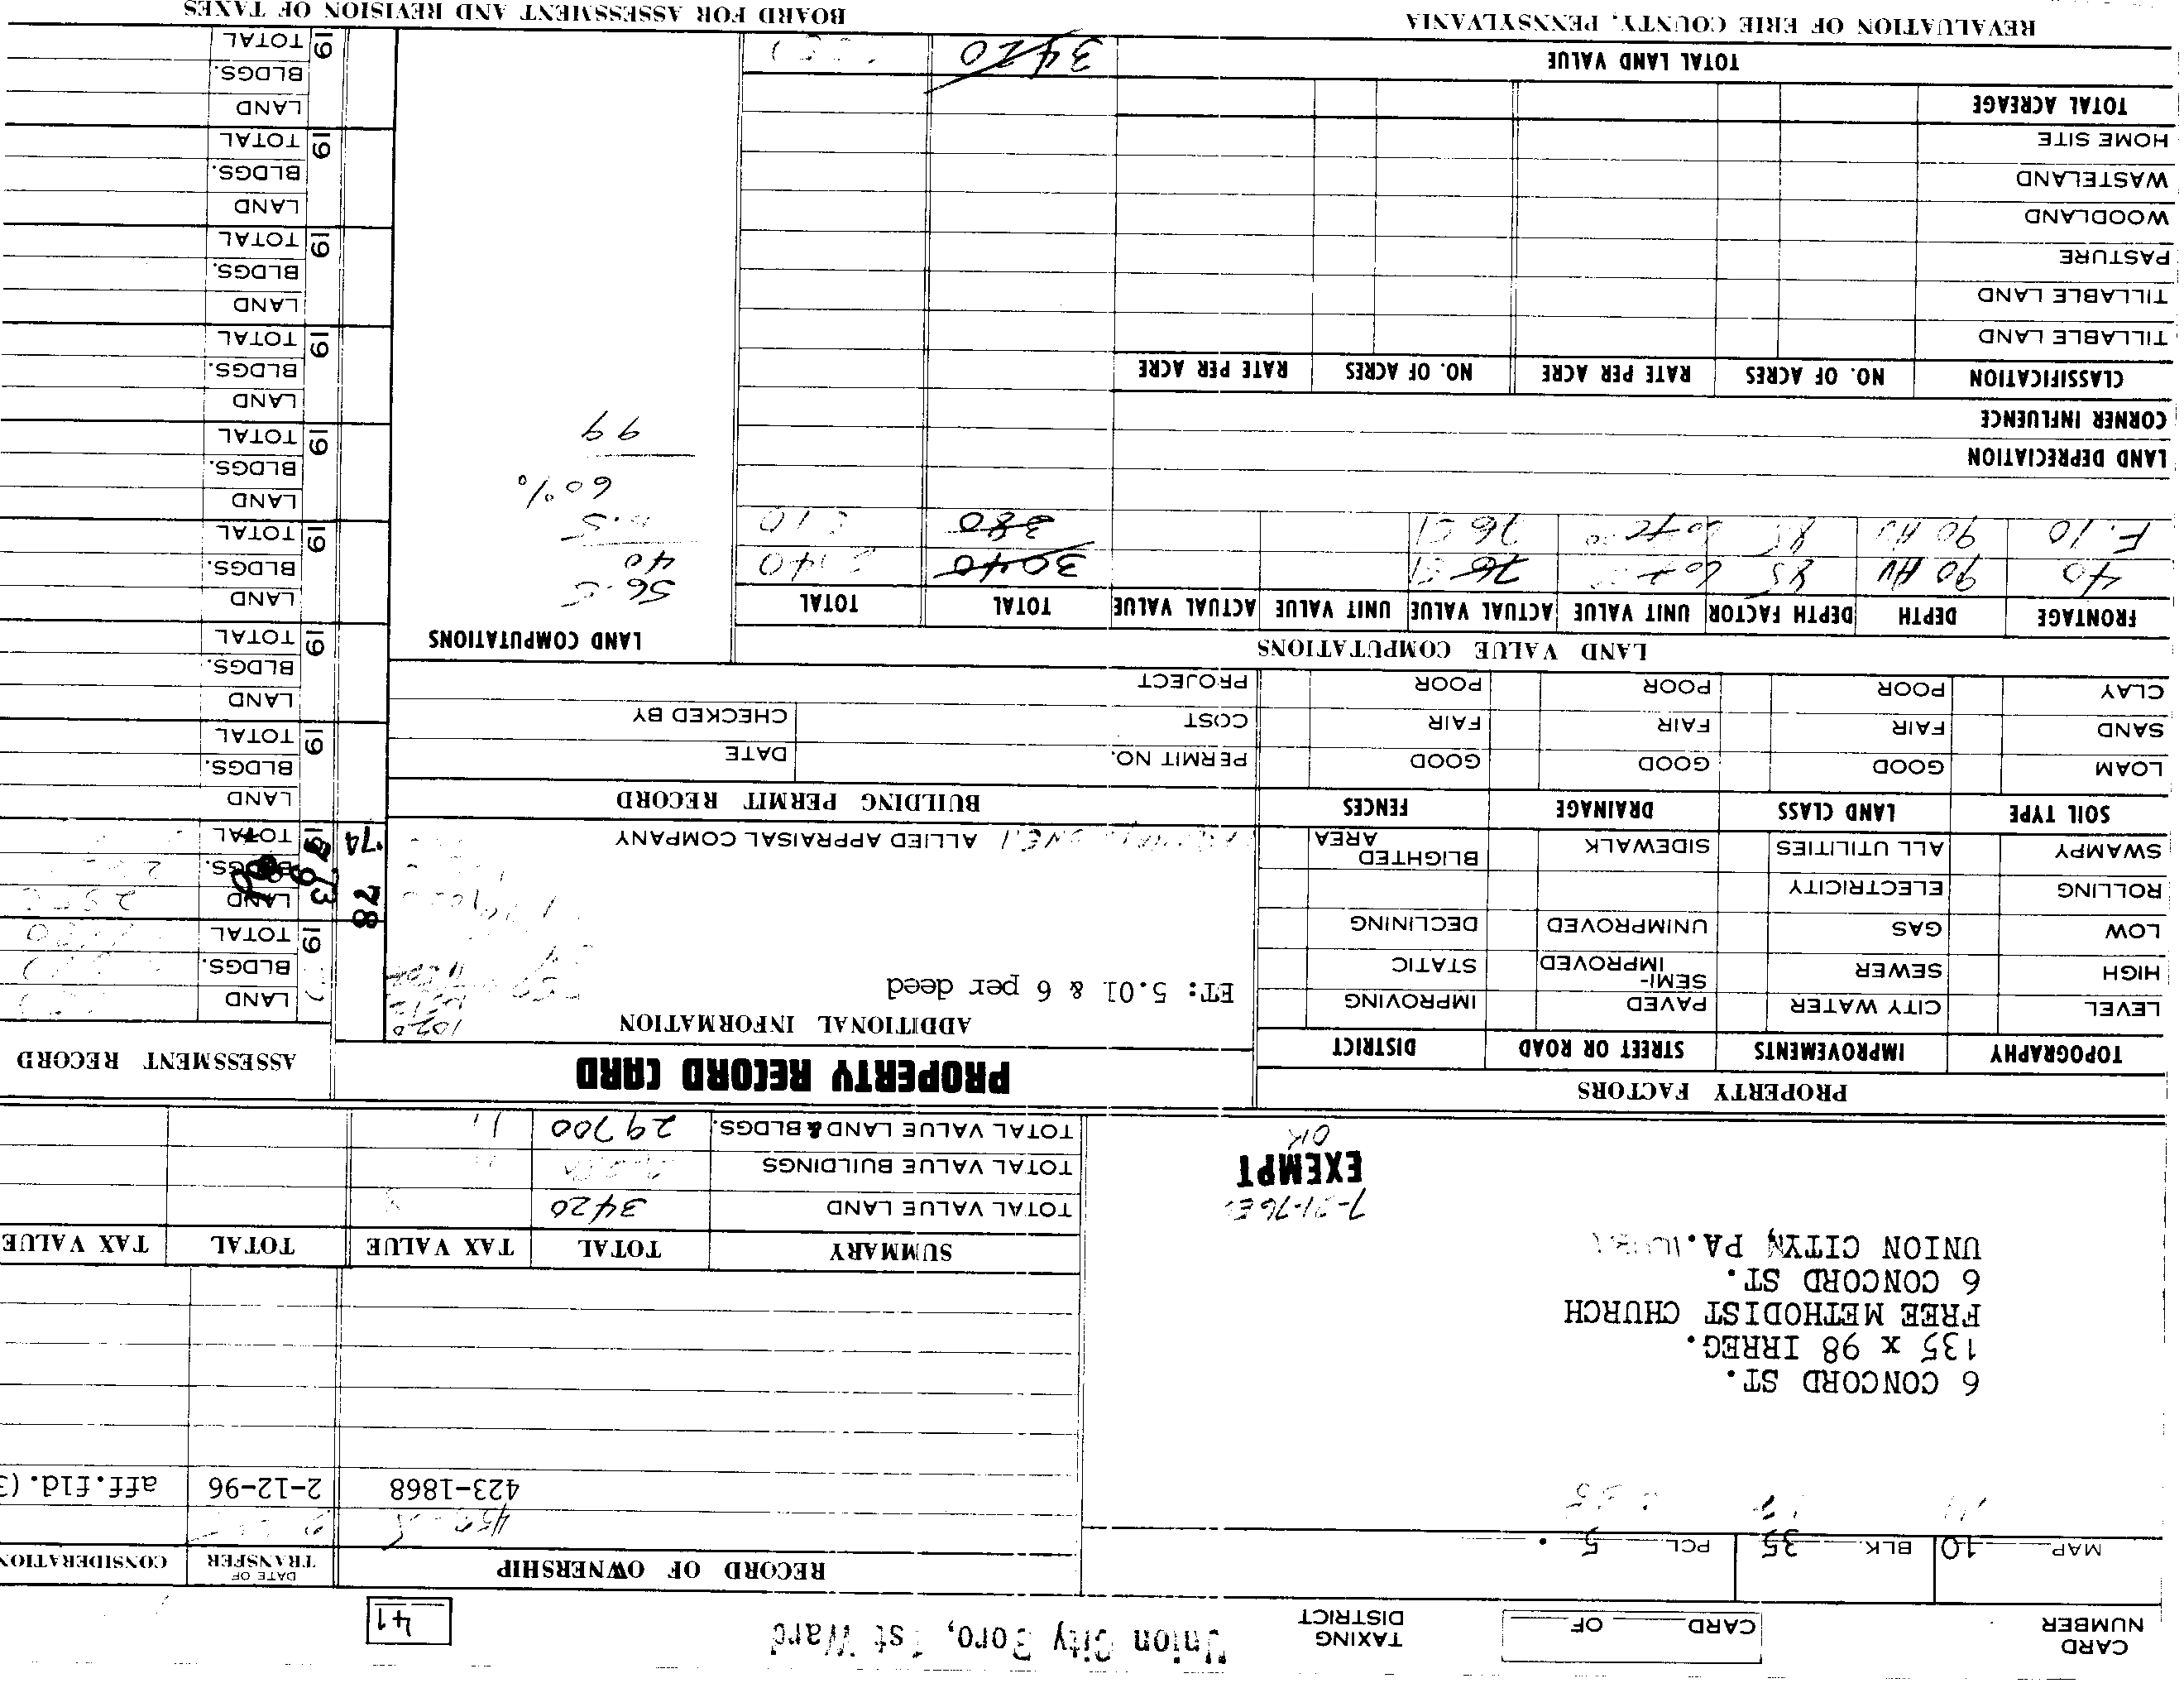 CARD NUMBER
CARD OF
TAXING DISTRICT
Union City Boro, 1st Ward
41
MAP 10 BLK. 35 PCL. 5 .
RECORD OF OWNERSHIP
DATE OF TRANSFER
CONSIDERATION
423-1868 2-12-96 aff.fld.(
6 CONCORD ST.
135 x 98 IRREG.
FREE METHODIST CHURCH
6 CONCORD ST.
UNION CITY, PA.
EXEMPT
OK
SUMMARY TOTAL TAX VALUE TOTAL TAX VALUE
TOTAL VALUE LAND 3420
TOTAL VALUE BUILDINGS
TOTAL VALUE LAND & BLDGS. 29700
PROPERTY FACTORS
TOPOGRAPHY IMPROVEMENTS STREET OR ROAD DISTRICT
LEVEL CITY WATER PAVED IMPROVING
HIGH SEWER SEMI-IMPROVED STATIC
LOW GAS UNIMPROVED DECLINING
ROLLING ELECTRICITY
SWAMPY ALL UTILITIES SIDEWALK BLIGHTED AREA
SOIL TYPE LAND CLASS DRAINAGE FENCES
LOAM GOOD GOOD GOOD
SAND FAIR FAIR FAIR
CLAY POOR POOR POOR
PROPERTY RECORD CARD
ADDITIONAL INFORMATION
ET: 5.01 & 6 per deed
ALLIED APPRAISAL COMPANY
BUILDING PERMIT RECORD
PERMIT NO. DATE
COST CHECKED BY
PROJECT
ASSESSMENT RECORD
19 LAND
BLDGS.
TOTAL
78
'74
1973
19 LAND
BLDGS.
TOTAL
19 LAND
BLDGS.
TOTAL
19 LAND
BLDGS.
TOTAL
19 LAND
BLDGS.
TOTAL
19 LAND
BLDGS.
TOTAL
19 LAND
BLDGS.
TOTAL
19 LAND
BLDGS.
TOTAL
19 LAND
BLDGS.
TOTAL
19 LAND
BLDGS.
TOTAL
LAND VALUE COMPUTATIONS
LAND COMPUTATIONS
FRONTAGE DEPTH DEPTH FACTOR UNIT VALUE ACTUAL VALUE UNIT VALUE ACTUAL VALUE TOTAL TOTAL
40 90 AV 85 76 3040
F. 10 90 AV 85 76 380
40
60%
99
LAND DEPRECIATION
CORNER INFLUENCE
CLASSIFICATION NO. OF ACRES RATE PER ACRE NO. OF ACRES RATE PER ACRE
TILLABLE LAND
TILLABLE LAND
PASTURE
WOODLAND
WASTELAND
HOME SITE
TOTAL ACREAGE
TOTAL LAND VALUE 3420
REVALUATION OF ERIE COUNTY, PENNSYLVANIA
BOARD FOR ASSESSMENT AND REVISION OF TAXES